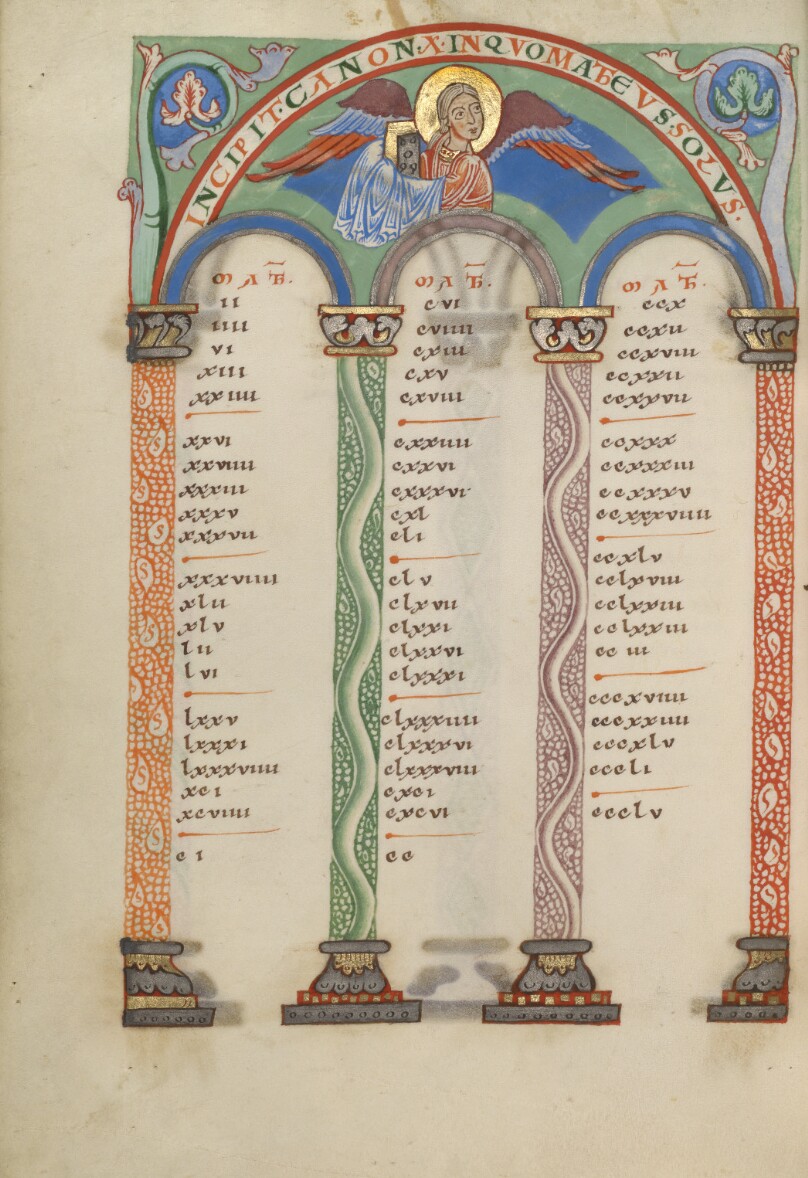 INCIPIT·CANON·X·IN QVO MATHEVS SOLVS·
MATH.
ii
iiii
vi
xiii
xxiiii
xxvi
xxviiii
xxxiii
xxxv
xxxvii
xxxviiii
xlii
xlv
lii
lvi
lxxv
lxxxi
lxxxviiii
xci
xcviiii
ci
MATH.
cvi
cviiii
cxiii
cxv
cxviii
cxxiiii
cxxvi
cxxxvi
cxl
cli
clv
clxvii
clxxi
clxxvi
clxxxi
clxxxiiii
clxxxvi
clxxxviii
cxci
cxcvi
cc
MATH.
ccx
ccxii
ccxviii
ccxxii
ccxxvii
ccxxx
ccxxxiii
ccxxxv
ccxxxviiii
ccxlv
cclxviii
cclxxiii
cclxxiii
cc iii
cccxviiii
cccxxiiii
cccxlv
cccli
ccclv